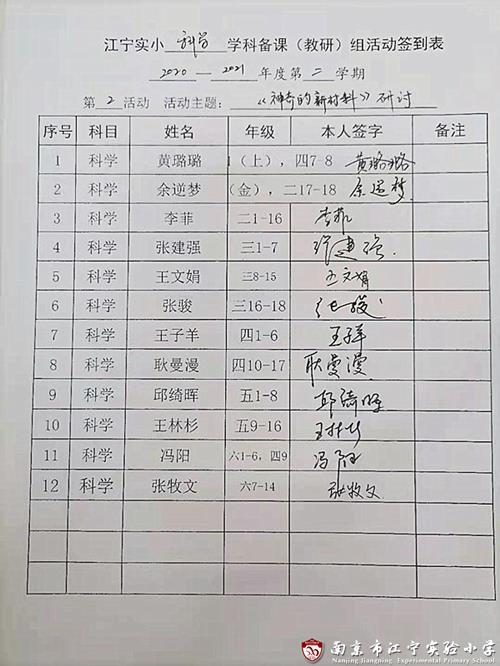 江宁实小 科学 学科备课（教研）组活动签到表
2020—2021 年度第二学期
第 2 活动 活动主题：《神奇的新材料》研讨
序号 科目 姓名 年级 本人签字 备注
1 科学 黄璐璐 1（上），四7-8 黄璐璐
2 科学 余逆梦 （金），二17-18 余逆梦
3 科学 李菲 二1-16 李菲
4 科学 张建强 三1-7 张建强
5 科学 王文娟 三8-15 王文娟
6 科学 张骏 三16-18 张骏
7 科学 王子羊 四1-6 王子羊
8 科学 耿曼漫 四10-17 耿曼漫
9 科学 邱绮晖 五1-8 邱绮晖
10 科学 王林杉 五9-16 王林杉
11 科学 冯阳 六1-6，四9 冯阳
12 科学 张牧文 六7-14 张牧文
南京市江宁实验小学
Nanjing Jiangning Experimental Primary School